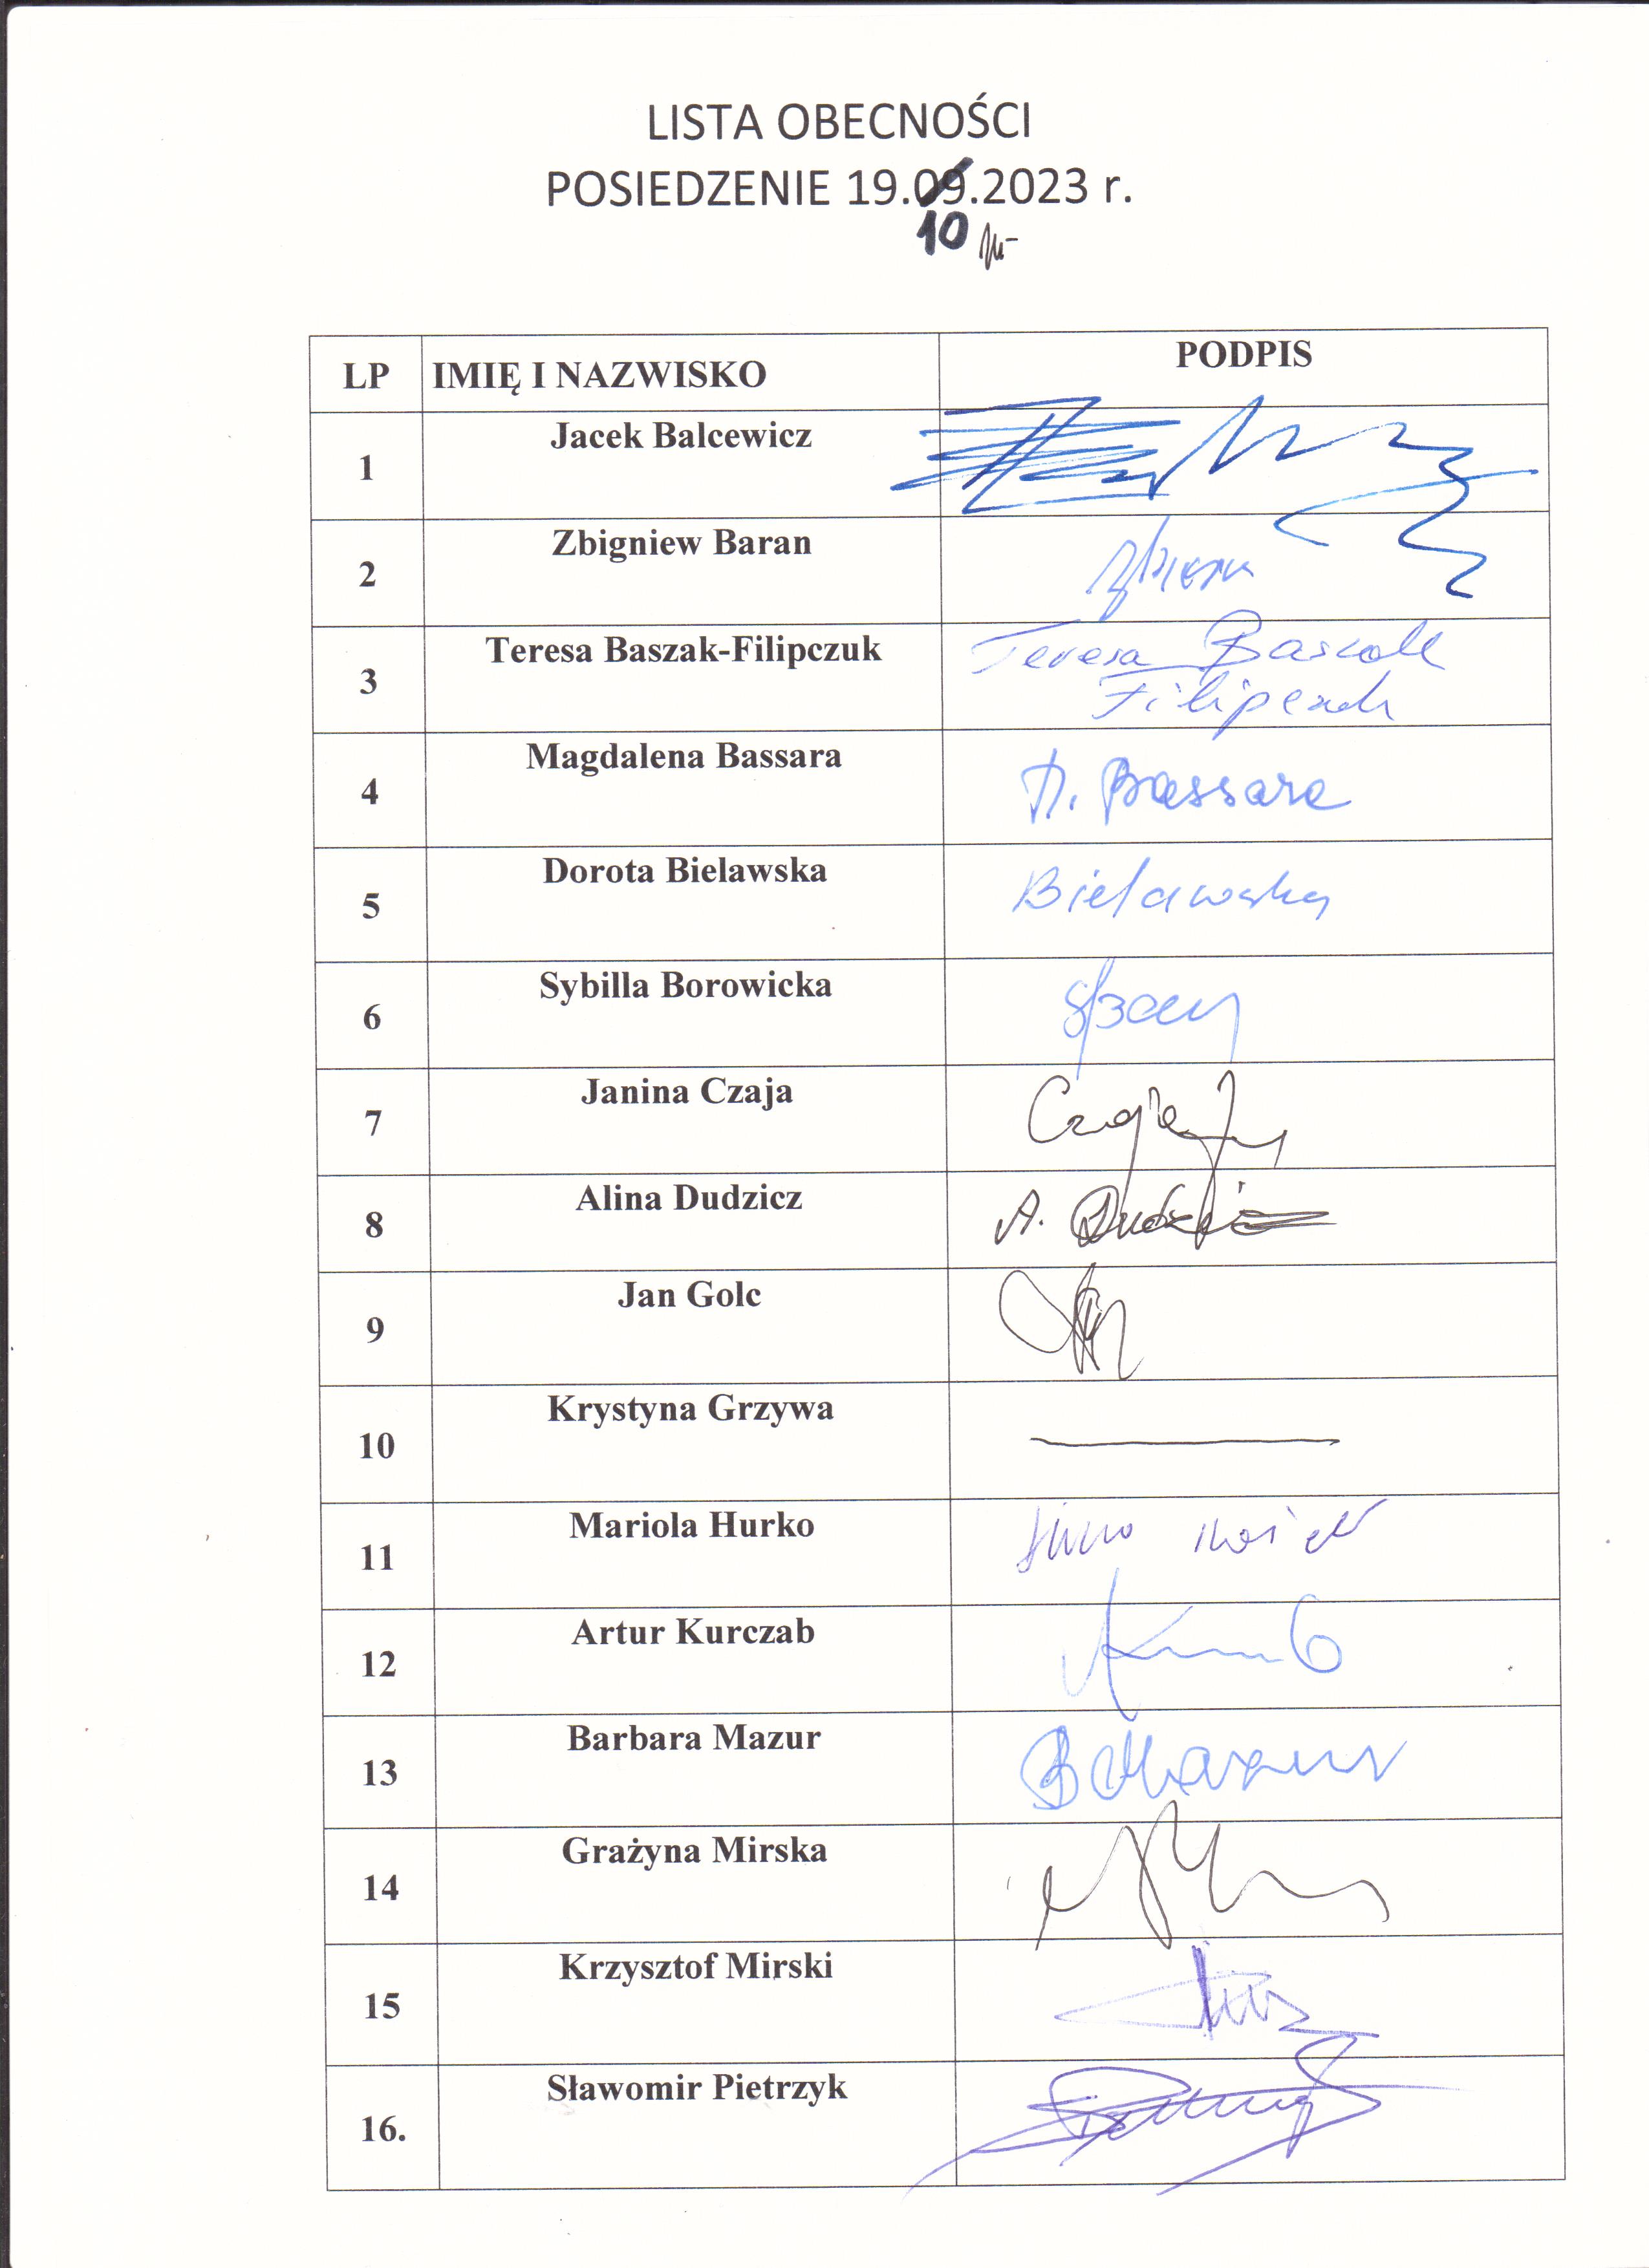 LISTA OBECNOŚCI
POSIEDZENIE 19.09.2023 r.
10
LP IMIĘ I NAZWISKO PODPIS
1 Jacek Balcewicz
2 Zbigniew Baran
3 Teresa Baszak-Filipczuk Teresa Baszak
Filipczuk
4 Magdalena Bassara M. Bassara
5 Dorota Bielawska Bielawska
6 Sybilla Borowicka
7 Janina Czaja Czaja
8 Alina Dudzicz A. Dudzicz
9 Jan Golc
10 Krystyna Grzywa
11 Mariola Hurko
12 Artur Kurczab
13 Barbara Mazur B Mazur
14 Grażyna Mirska
15 Krzysztof Mirski
16. Sławomir Pietrzyk